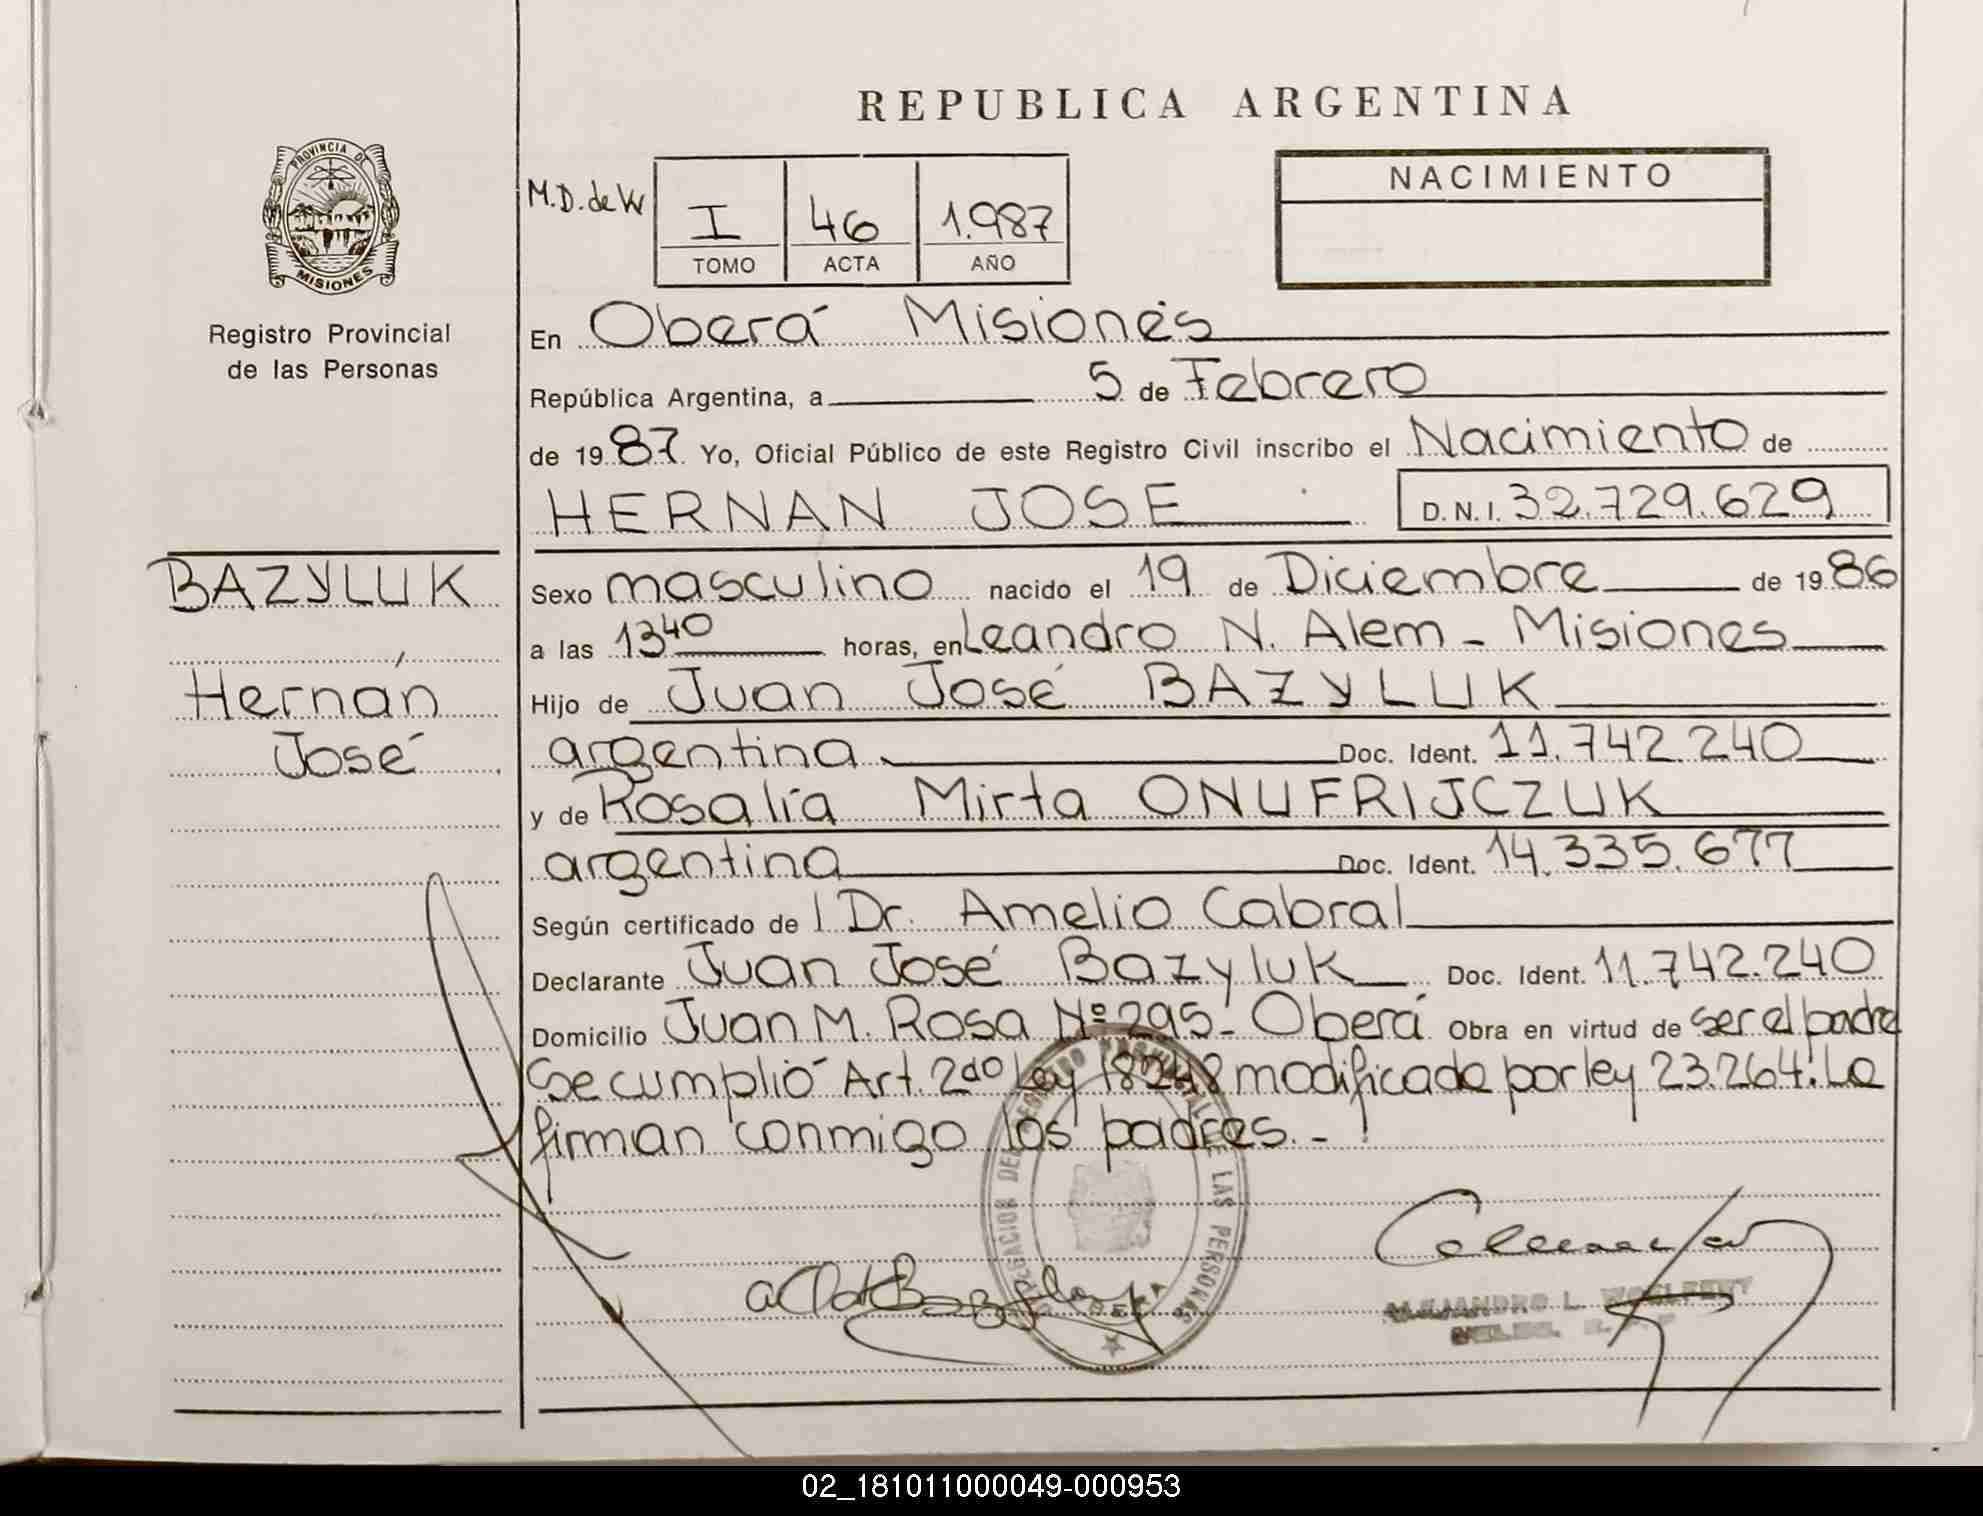 REPUBLICA ARGENTINA
PROVINCIA DE
MISIONES
Registro Provincial
de las Personas
M.D. de
I 46 1.987
TOMO ACTA AÑO
NACIMIENTO
En Oberá Misiones
República Argentina, a 5 de Febrero
de 1987 Yo, Oficial Público de este Registro Civil inscribo el Nacimiento de
HERNAN JOSE D.N.I. 32.729.629
BAZYLUK
Hernán
José
Sexo masculino nacido el 19 de Diciembre de 1986
a las 13 40 horas, en Leandro N. Alem - Misiones
Hijo de Juan José BAZYLUK
argentina Doc. Ident. 11.742.240
y de Rosalía Mirta ONUFRIJCZUK
argentina Doc. Ident. 14.335.677
Según certificado de Dr. Amelio Cabral
Declarante Juan José Bazyluk Doc. Ident. 11.742.240
Domicilio Juan M. Rosa Nº 295 - Oberá Obra en virtud de ser el padre
Se cumplió Art. 2do Ley 18248 modificada por ley 23.264. Le
firman conmigo los padres. -
DE LAS PERSONAS
ALEJANDRO L.
02_181011000049-000953